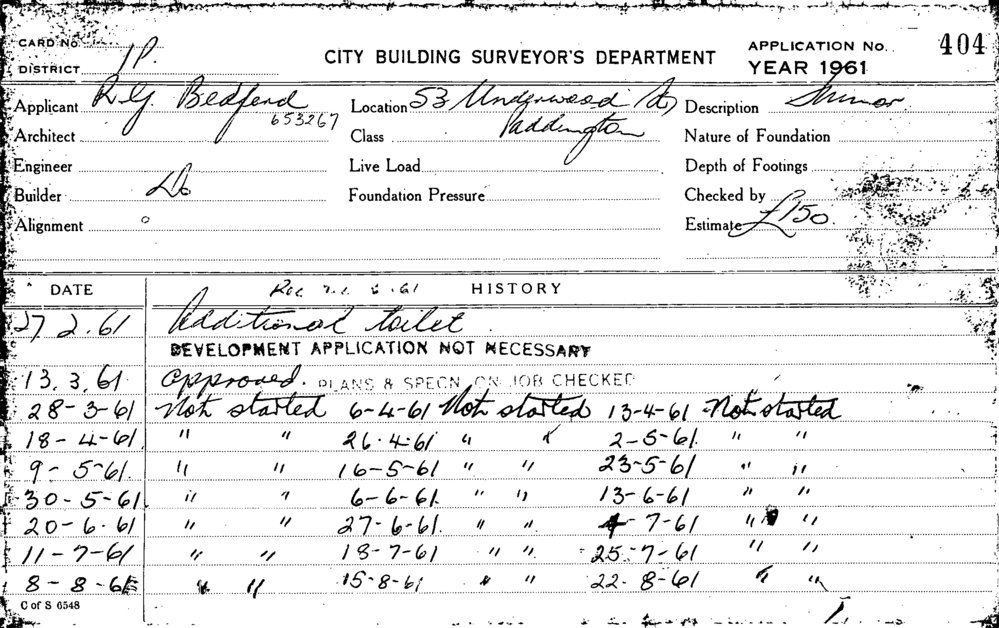 CARD No.
DISTRICT 1P.
CITY BUILDING SURVEYOR'S DEPARTMENT
APPLICATION No. 404
YEAR 1961
Applicant R.G. Bedford 653267 Location 53 Underwood Rd Paddington Description Minor
Architect Class Nature of Foundation
Engineer Live Load Depth of Footings
Builder Do Foundation Pressure Checked by
Alignment Estimate £150.
DATE HISTORY
27.2.61 Additional toilet.
DEVELOPMENT APPLICATION NOT NECESSARY
13.3.61 Approved. PLANS & SPECN ON JOB CHECKED
28-3-61 Not started 6-4-61 Not started 13-4-61 Not started
18-4-61 " " 26.4.61 " " 2-5-61. " "
9-5-61. " " 16-5-61 " " 23-5-61 " "
30-5-61 " " 6-6-61. " " 13-6-61 " "
20-6-61 " " 27-6-61. " " 4-7-61 " "
11-7-61 " " 18-7-61 " " 25-7-61 " "
8-8-61 " " 15-8-61 " " 22-8-61 " "
C of S 6548